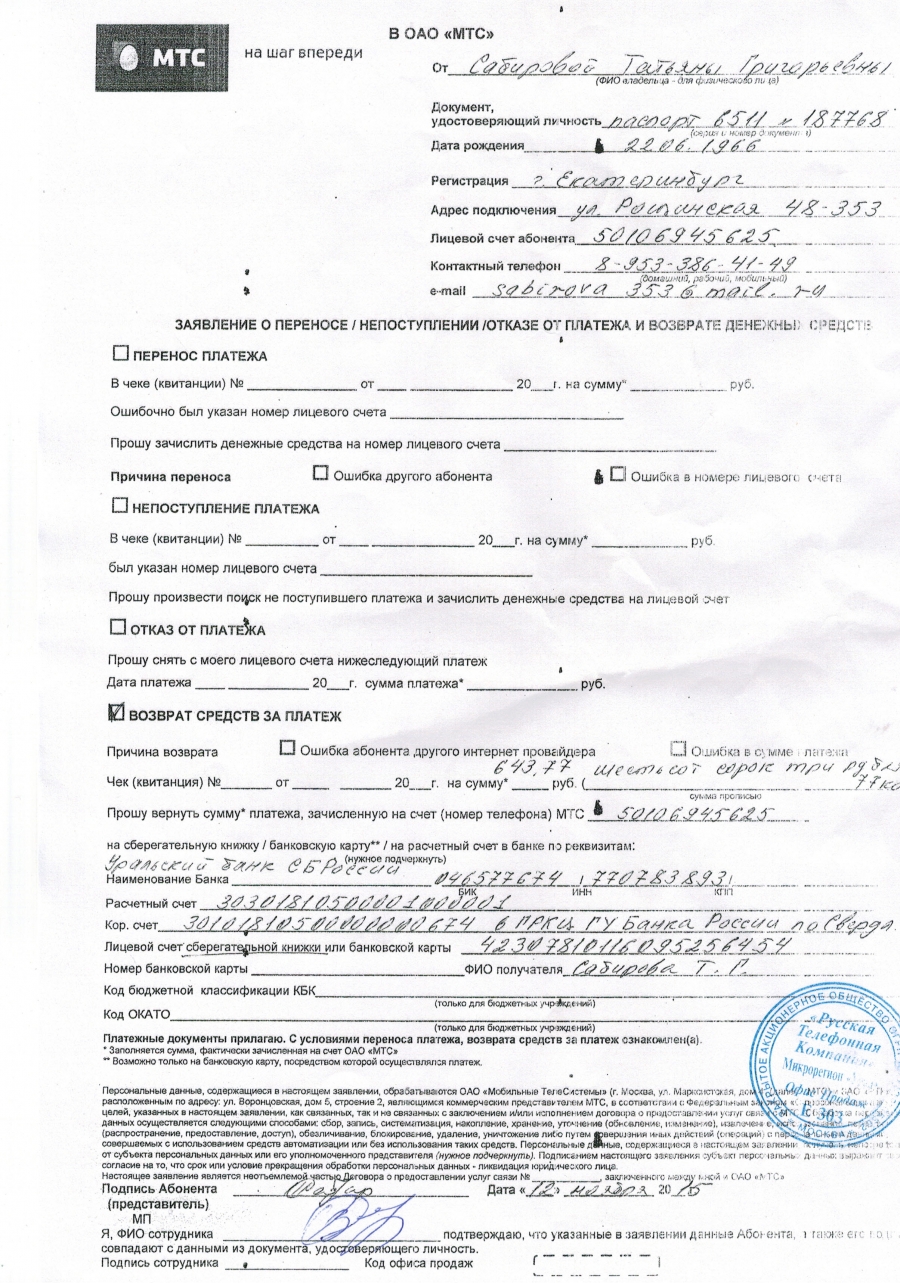 МТС
на шаг впереди
В ОАО «МТС»
От Сабировой Татьяны Григорьевны
(ФИО владельца - для физического лица)
Документ,
удостоверяющий личность паспорт 6511 № 187768
(серия и номер документа)
Дата рождения 22.06.1966
Регистрация г. Екатеринбург
Адрес подключения ул. Рощинская 48-353
Лицевой счет абонента 50106945625
Контактный телефон 8-953-386-41-49
(домашний, рабочий, мобильный)
e-mail sabirova 353@mail.ru
ЗАЯВЛЕНИЕ О ПЕРЕНОСЕ / НЕПОСТУПЛЕНИИ /ОТКАЗЕ ОТ ПЛАТЕЖА И ВОЗВРАТЕ ДЕНЕЖНЫХ СРЕДСТВ
ПЕРЕНОС ПЛАТЕЖА
В чеке (квитанции) № от 20 г. на сумму* руб.
Ошибочно был указан номер лицевого счета
Прошу зачислить денежные средства на номер лицевого счета
Причина переноса Ошибка другого абонента Ошибка в номере лицевого счета
НЕПОСТУПЛЕНИЕ ПЛАТЕЖА
В чеке (квитанции) № от 20 г. на сумму* руб.
был указан номер лицевого счета
Прошу произвести поиск не поступившего платежа и зачислить денежные средства на лицевой счет
ОТКАЗ ОТ ПЛАТЕЖА
Прошу снять с моего лицевого счета нижеследующий платеж
Дата платежа 20 г. сумма платежа* руб.
ВОЗВРАТ СРЕДСТВ ЗА ПЛАТЕЖ
Причина возврата Ошибка абонента другого интернет провайдера Ошибка в сумме платежа
643,77 шестьсот сорок три рубл
Чек (квитанция) № от 20 г. на сумму* руб. ( 77 ко
сумма прописью
Прошу вернуть сумму* платежа, зачисленную на счет (номер телефона) МТС 50106945625
на сберегательную книжку / банковскую карту** / на расчетный счет в банке по реквизитам:
(нужное подчеркнуть)
Уральский банк СБ России
Наименование Банка 046577674 7707838931
БИК ИНН КПП
Расчетный счет 30301810500001000001
Кор. счет 30101810500000000674 в ГРКЦ ГУ Банка России по Свердл.
Лицевой счет сберегательной книжки или банковской карты 42307810116095256454
Номер банковской карты ФИО получателя Сабирова Т. Г.
Код бюджетной классификации КБК
(только для бюджетных учреждений)
Код ОКАТО
(только для бюджетных учреждений)
Платежные документы прилагаю. С условиями переноса платежа, возврата средств за платеж ознакомлен(а).
* Заполняется сумма, фактически зачисленная на счет ОАО «МТС»
** Возможно только на банковскую карту, посредством которой осуществлялся платеж.
«Русская
Телефонная
Компания»
Микрорегион
Офис продаж
Е 303
Персональные данные, содержащиеся в настоящем заявлении, обрабатываются ОАО «Мобильные ТелеСистемы» (г. Москва, ул. Марксистская, дом
расположенным по адресу: ул. Воронцовская, дом 5, строение 2, являющимся коммерческим представителем МТС, в соответствии с Федеральным
целей, указанных в настоящем заявлении, как связанных, так и не связанных с заключением и/или исполнением договора о предоставлении услуг связи
данных осуществляется следующими способами: сбор, запись, систематизация, накопление, хранение, уточнение (обновление, изменение),
(распространение, предоставление, доступ), обезличивание, блокирование, удаление, уничтожение либо путем совершения иных действий (операций) с
совершаемых с использованием средств автоматизации или без использования таких средств. Персональные данные, содержащиеся в настоящем заявлении,
от субъекта персональных данных или его уполномоченного представителя (нужное подчеркнуть). Подписанием настоящего заявления субъект персональных данных выражает
согласие на то, что срок или условие прекращения обработки персональных данных - ликвидация юридического лица.
Настоящее заявление является неотъемлемой частью Договора о предоставлении услуг связи № , заключенного между мной и ОАО «МТС»
Подпись Абонента Дата «12» ноября 2015
(представитель)
МП
Я, ФИО сотрудника подтверждаю, что указанные в заявлении данные Абонента, а также его
совпадают с данными из документа, удостоверяющего личность.
Подпись сотрудника Код офиса продаж